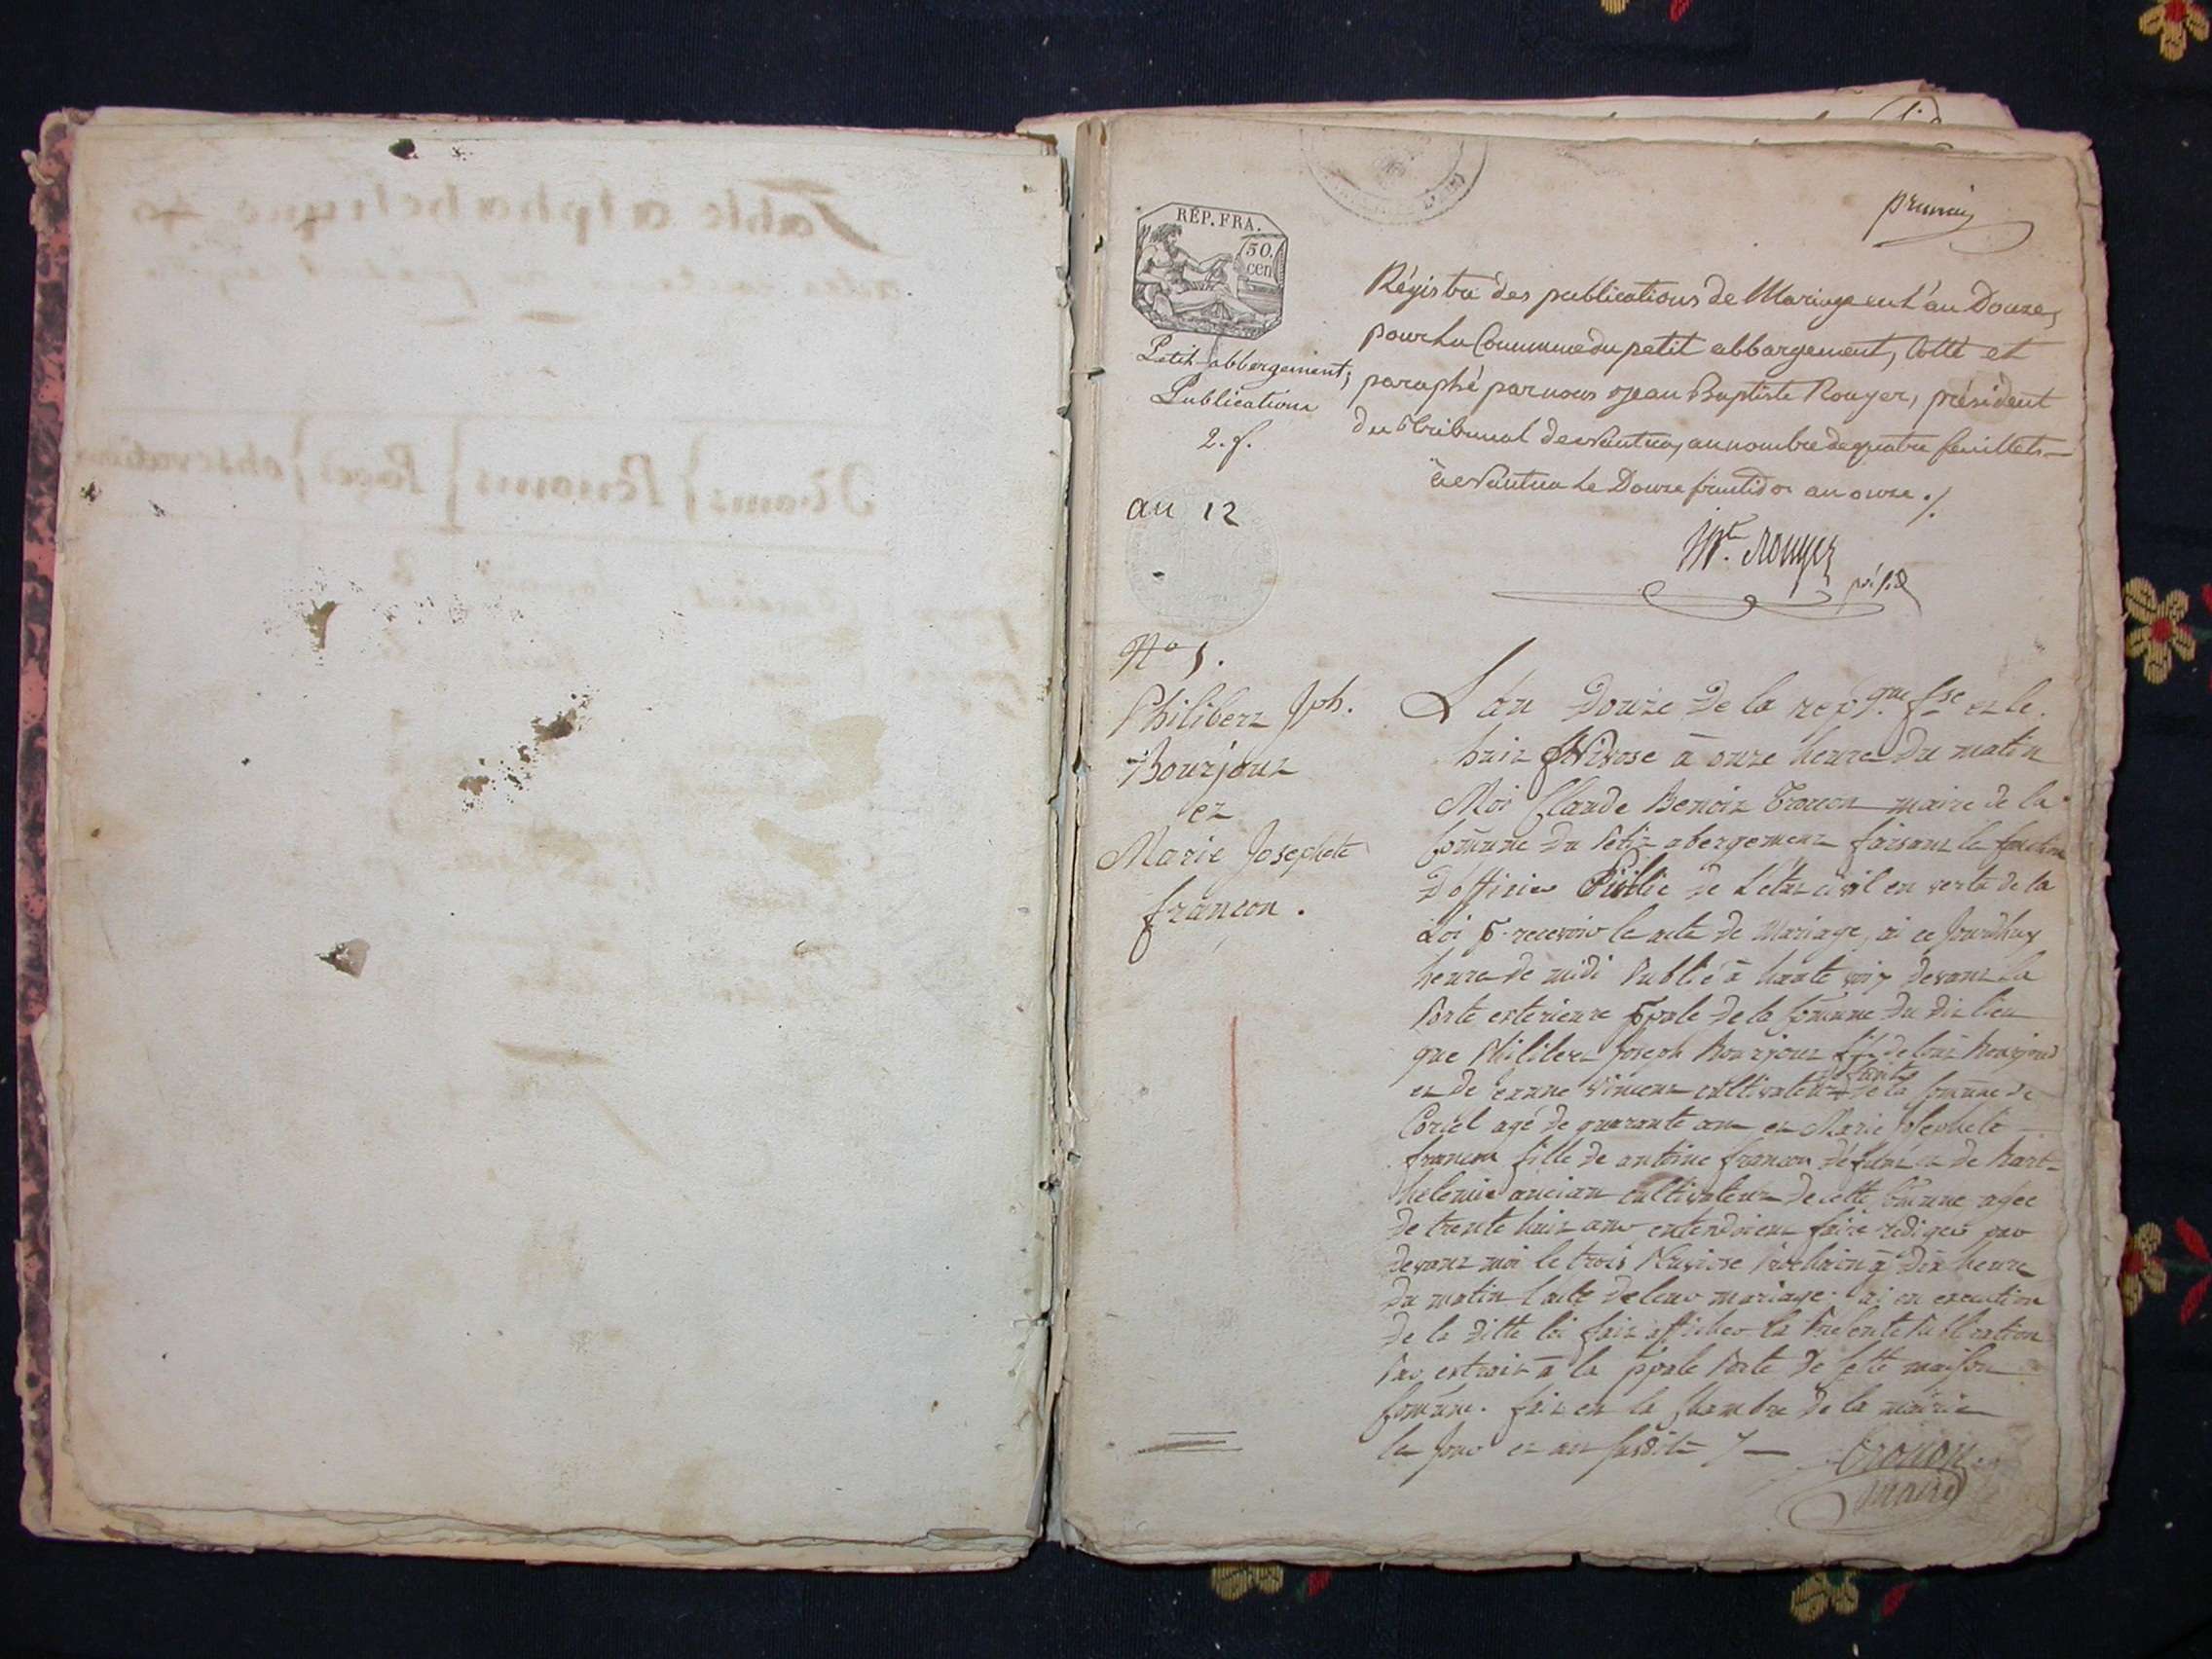 Table alphabetique
Noms } Prenoms } Pages } observations
premier
RÉP. FRA.
50.
cen
Petit abbergement;
Publications
2. f.
an 12
Régistre des publications de Mariage en L'an Douze,
pour La Commune du petit abbargement, Cotté et
paraphé par nous Jean Baptiste Rouyer, président
du Tribunal de Nantua, au nombre de quatre feuillets —
à Nantua Le Douze fructidor an onze ./.
Rouyer
présid
No 1.
Philibert Jph.
Bourjout
et
Marie Josephete
francon .
L'an Douze De la repq.que fse et le
huit Nivose à onze heures Du matin
Moi Claude Benoit Tronon maire de la
Comune Du Petit abergement faisant la fonction
D'officier Public De L'état civil en vertu de la
Loi pr. recevoir le acte de Mariage, ai ce Jourdhuy
heure De midi Publié à haute voix Devant la
Porte exterieure ppale De la Comune Du Dit lieu
que Philibert Joseph Bourjout fils de Bourjout
et De Jeanne Vincent cultivateur De la Comune De
Corcel agé De quarante ans et Marie Josephete
francon fille De antoine francon Défunt et De Bart-
helemie ancian cultivateur De cette Comune agée
De trente huit ans entendoient faire rediger par
devant moi le trois Pluviose Prochain à Dix heure
Du matin l'acte De leur mariage. ai en execution
De la Ditte loi fait afficher la Presente Publication
Par extrait à la ppale Porte De cette maison
Comune. fait en la Chambre De la mairie
le Jour et an susdits /—
Tronon.
maire